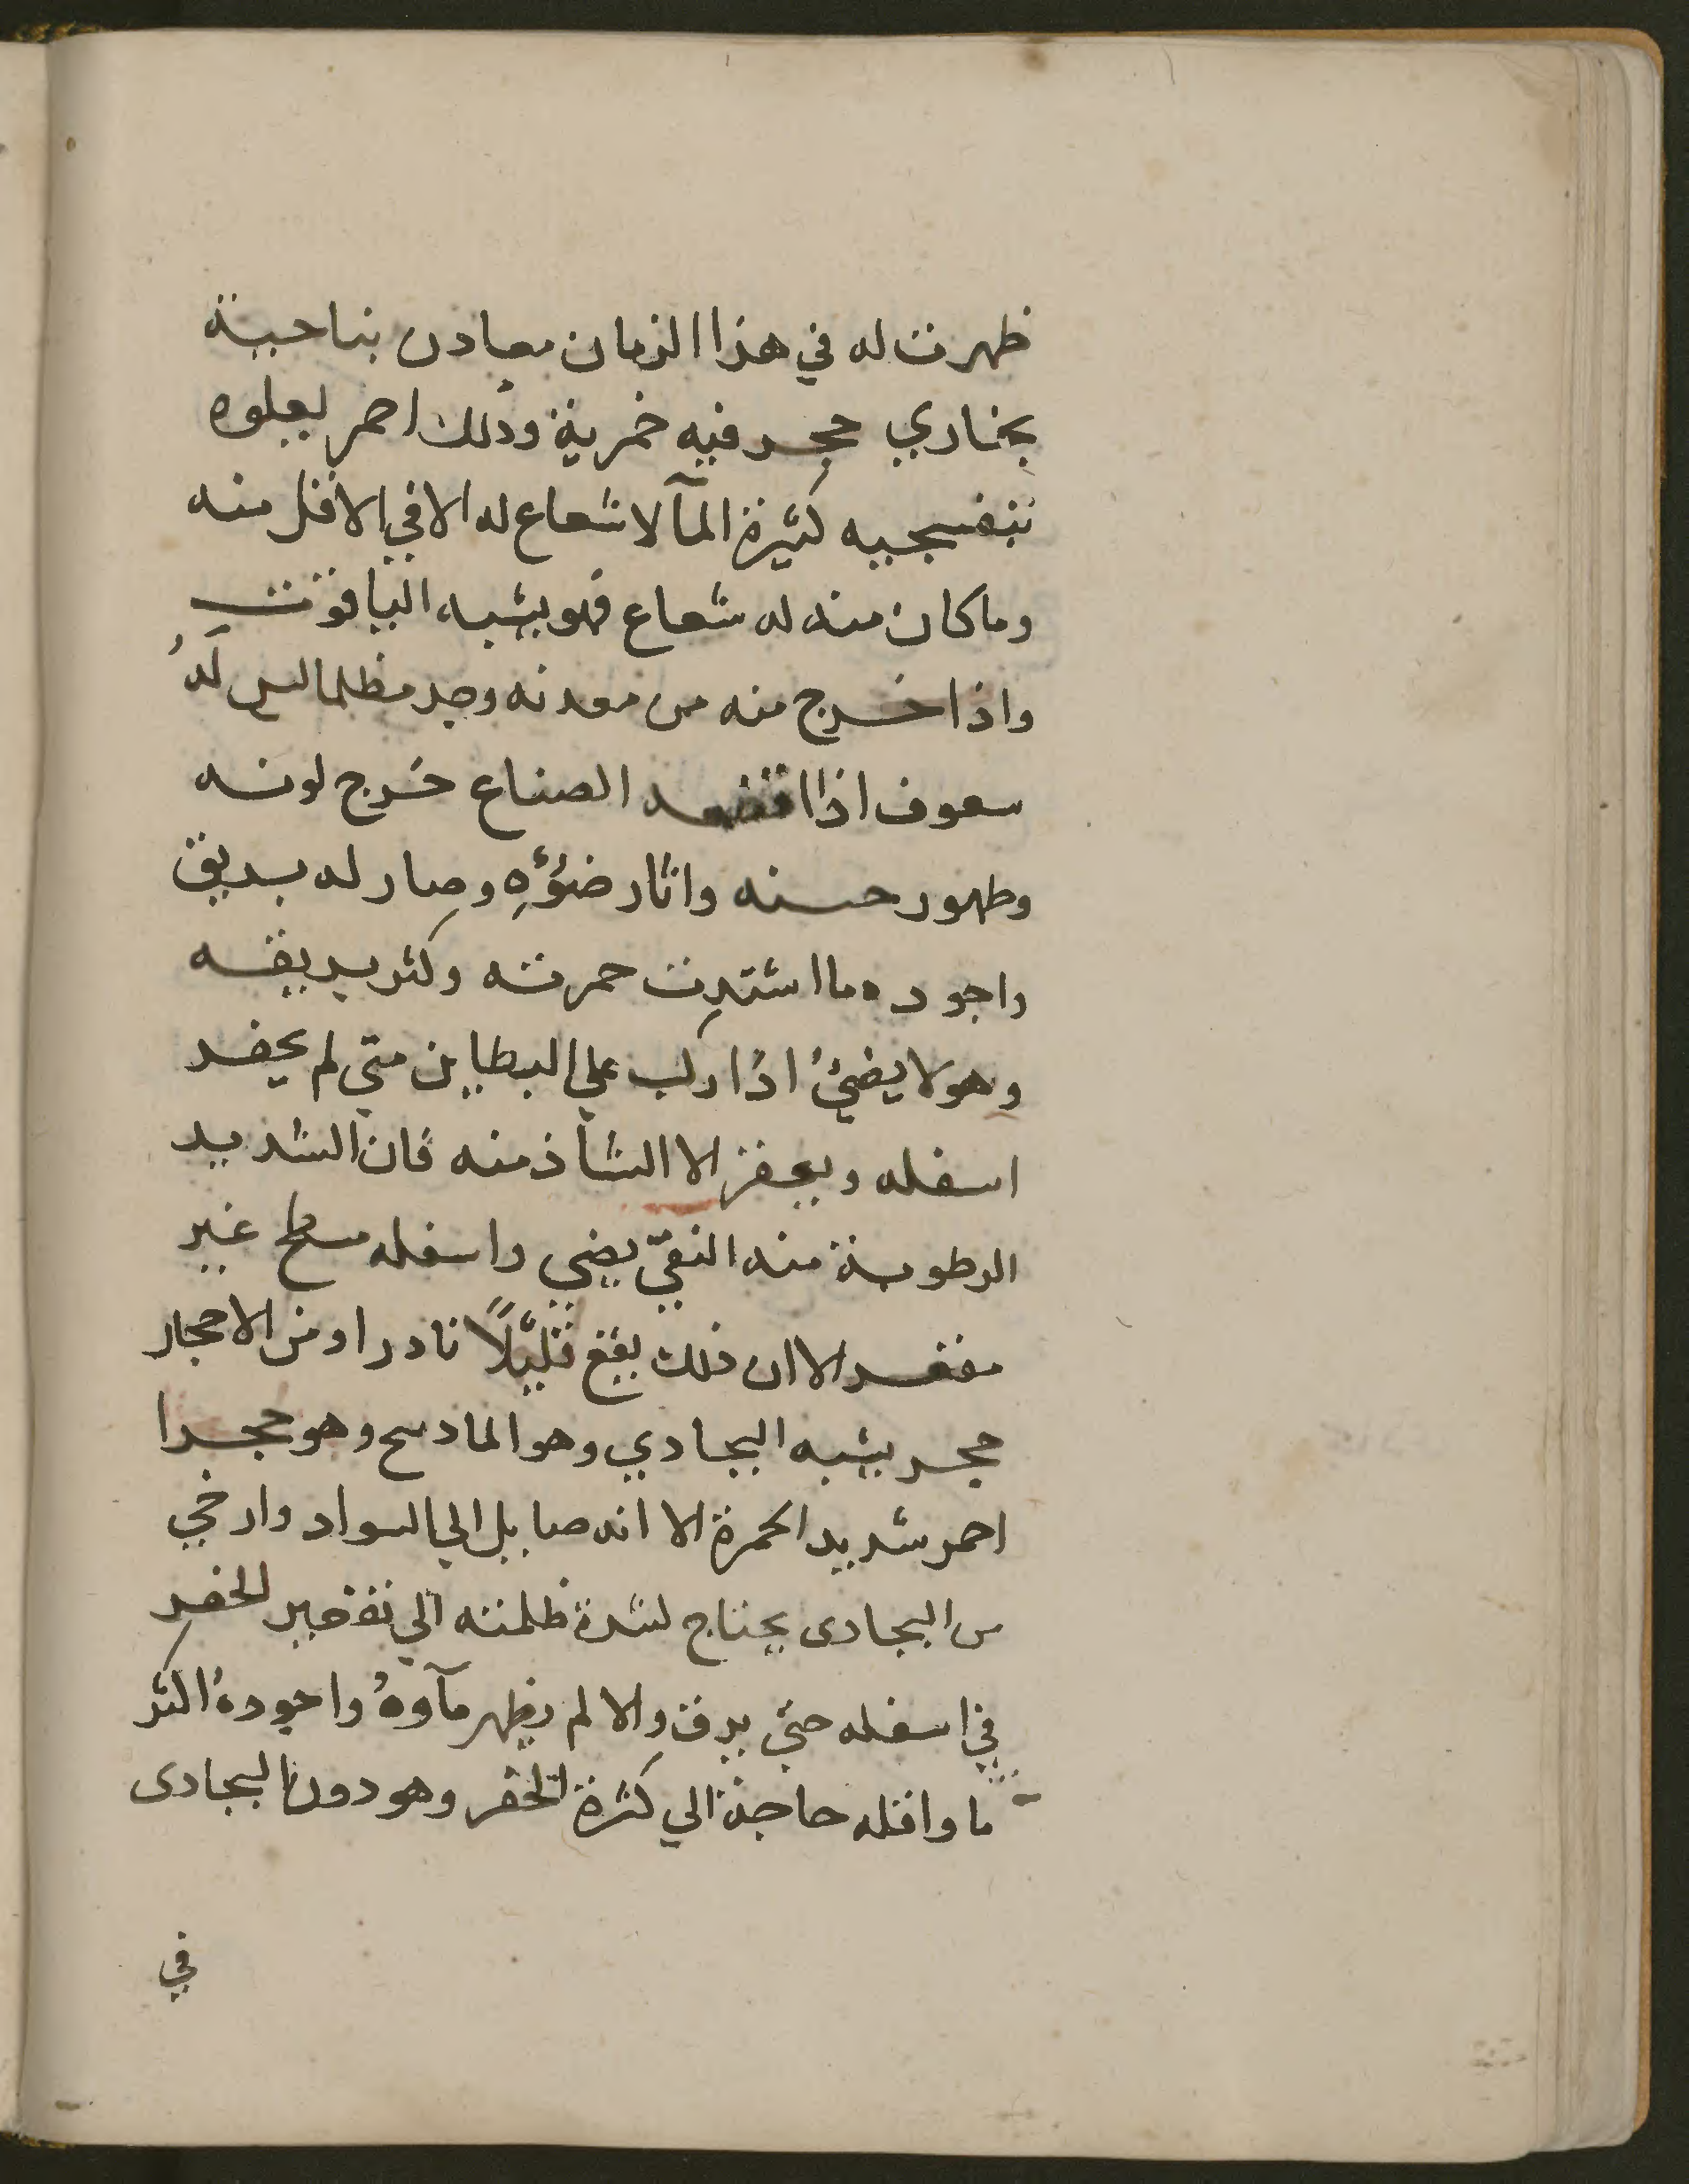 ظهرت له في هذا الزمان معادن بناحية
بخاري حجر فيه خمرية وذلك احمر يعلوه
بنفسجيه كثيرة المآ لا شعاع له الا في الاقل منه
وما كان منه له شعاع فهو يشبه الياقوت
واذا خرج منه من معدنه وجد مظلما ليس لهُ
سعوف اذا الصناع خرج لونه
وظهور حسنه وانار ضوؤهِ وصار له بريق
واجوده ما اشتدت حمرته وكثر بريقه
وهو لا يضيُ اذا ركب علي البطاين متي لم يحفر
اسفله ويحفز الا الشاذ منه فان الشديد
الرطوبة منه النقيّ يضي واسفله مسطح غير
مقعر الا ان ذلك يقع قليلًا نادرا ومن الاحجار
حجر يشبه البجادي وهو الماذنج وهو حجرا
احمر شديد الحمرة الا انه مايل الي السواد وارخي
من البجادى يحتاج لشدة ظلمته الي تقعير الحفر
في اسفله حتي يرق والا لم يظهر مآوهُ واجودهُ اكثر
ما واقله حاجة الي كثرة الحفر وهو دون البجادى
في